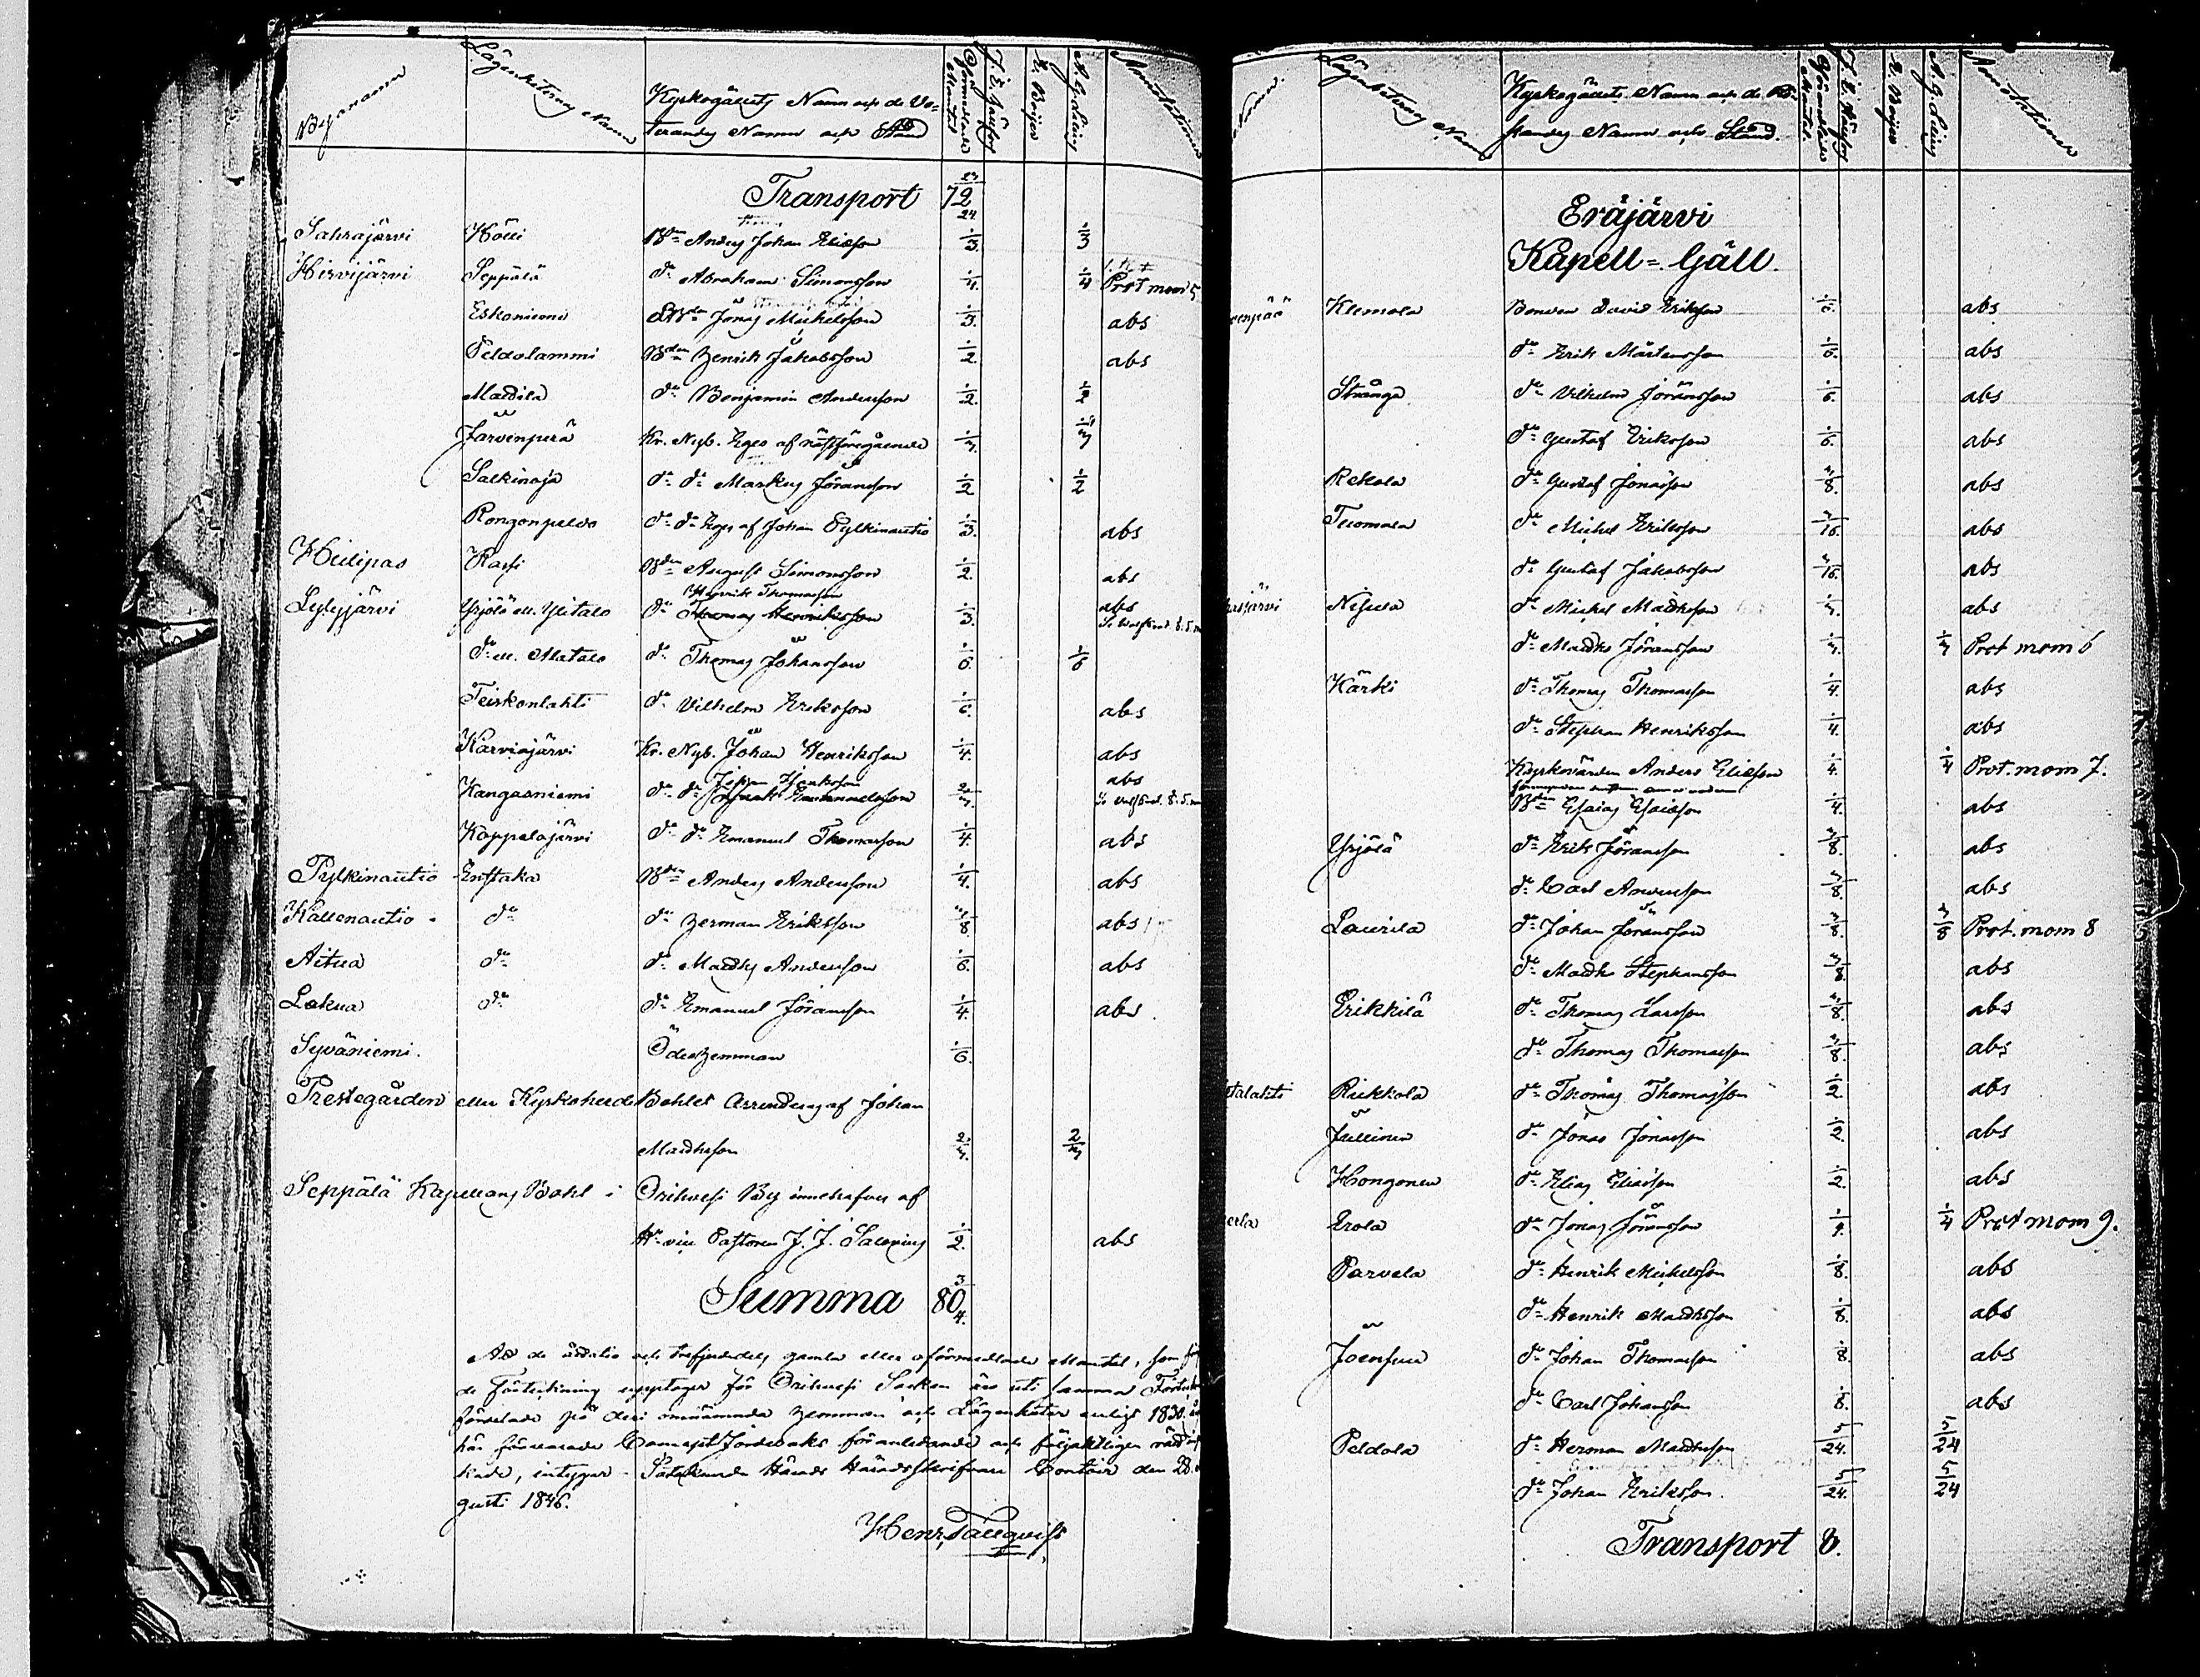 Bynamn Lägenheternes Namn Kyrkogällets Namn och de Vo-
terandes Namn och Stånd Oförmedlade Mantal A. G. Leing Annotationer
Transport 72 23/24
Sahrajärvi Hölli Bdn Anders Johan Eliasson 1/3. 1/3
Hirvijärvi Seppälä do Abraham Simonsson 1/4. 1/4 Prot mom 5
Eskoniemi Jonas Michelsson 1/3. abs
Peldolammi Bdn Henrik Jakobsson 1/2. abs
Mattila do Benjamin Andersson 1/2. 1/2
Järvenperä Kr. Nyb. Eges af nästföregående 1/3. 1/3
Salkinoja do do Markus Göransson 1/2 1/2
Rongonpeldo do do Eges af Johan Pylkinautio 1/3. abs
Heilipas Kassi Bdn August Simonsson 1/2. abs
Henrik Thomasson
Lylyjärvi Yrjölä ell. Ylitalo do Thomas Henriksson 1/3. abs
do ell. Alatalo do Thomas Johansson 1/6. 1/6
Teiskonlahti do Vilhelm Eriksson 1/6. abs
Karviajärvi Kr. Nyb. Johan Henriksson 1/4. abs
Kangasniemi do do Emanuelsson 2/3. abs
Koppelojärvi do do Emanuel Thomasson 1/4. abs
Pylkinautio Enstaka Bdn Anders Andersson 1/4. abs
Kallenautio do do Herman Eriksson 3/8. abs
Aitua do do Matths Andersson 1/6. abs
Lakua do do Emanuel Göransson 1/4. abs.
Syväniemi. Ödeshemman 1/6.
Prestegården eller Kyrkoherde Bohlet Arrenderas af Johan
Matthsson 2/3. 2/3
Seppälä Kapellans Bohl i Orihvesi By innehafves af
Hr vice Pastoren J. J. Salovius 1/2. abs
Summa 80 3/4.
Att de åttatio och trefjerdedels gamla eller oförmedlade Mantal, som
de Förteckning upptager för Orihvesi Socken äro uti samma
fördelade på deri omnämnda hemman och Lägenheter enligt 1830
här förvarade Concept Jordeboks föranledande och följaktligen
intygar Satakunda Härads Häradsskrifvare Contoir den 28
gusti 1846.
Henr. Tallqvist
Namn Lägenheternes Namn Kyrkogällets Namn och de Vo-
terandes Namn och Stånd. Oförmedlade Mantal A. G. Leing Annotationer
Eräjärvi
Kapell-Gäll.
Klemola Bonden David Eriksson 1/6. abs
do Erik Mårtensson 1/6. abs
Strånga do Vilhelm Göransson 1/6. abs
do Gustaf Eriksson 1/6. abs
Rekola do Gustaf Jonasson 3/8. abs
Tuomala do Michel Eriksson 3/16. abs
do Gustaf Jakobsson 3/16. abs
Nigula do Michel Matthsson 1/3. abs
do Matths Göransson 1/3. 1/3 Prot mom 6
Kärki do Thomas Thomasson 1/4. abs
do Stephan Henriksson 1/4. abs
Kyrkovärden Anders Eliasson 1/4. 1/4 Prot. mom 7.
Bdn Esaias Esaiasson 1/4. abs
Yrjölä do Erik Göransson 3/8. abs
do Carl Andersson 3/8. abs
Laurila do Johan Göransson 3/8. 3/8 Prot. mom 8
do Matths Stephansson 3/8. abs
Erikkilä do Thomas Larsson 3/8. abs
do Thomas Thomasson 3/8. abs
Riekkola do Thomas Thomasson 1/2. abs
Jullinen do Jonas Jonasson 1/2. abs
Hongonen do Elias Eliasson 1/2. abs
Erola do Jonas Göransson 1/4. 1/4 Prot mom 9.
Parvela do Henrik Michelsson 1/8. abs
do Henrik Matthsson 1/8. abs
Joensuu do Johan Thomasson 1/8. abs
do Carl Johansson 1/8. abs
Peldola do Herman Matthsson 5/24. 5/24
do Johan Eriksson. 5/24. 5/24
Transport 8.